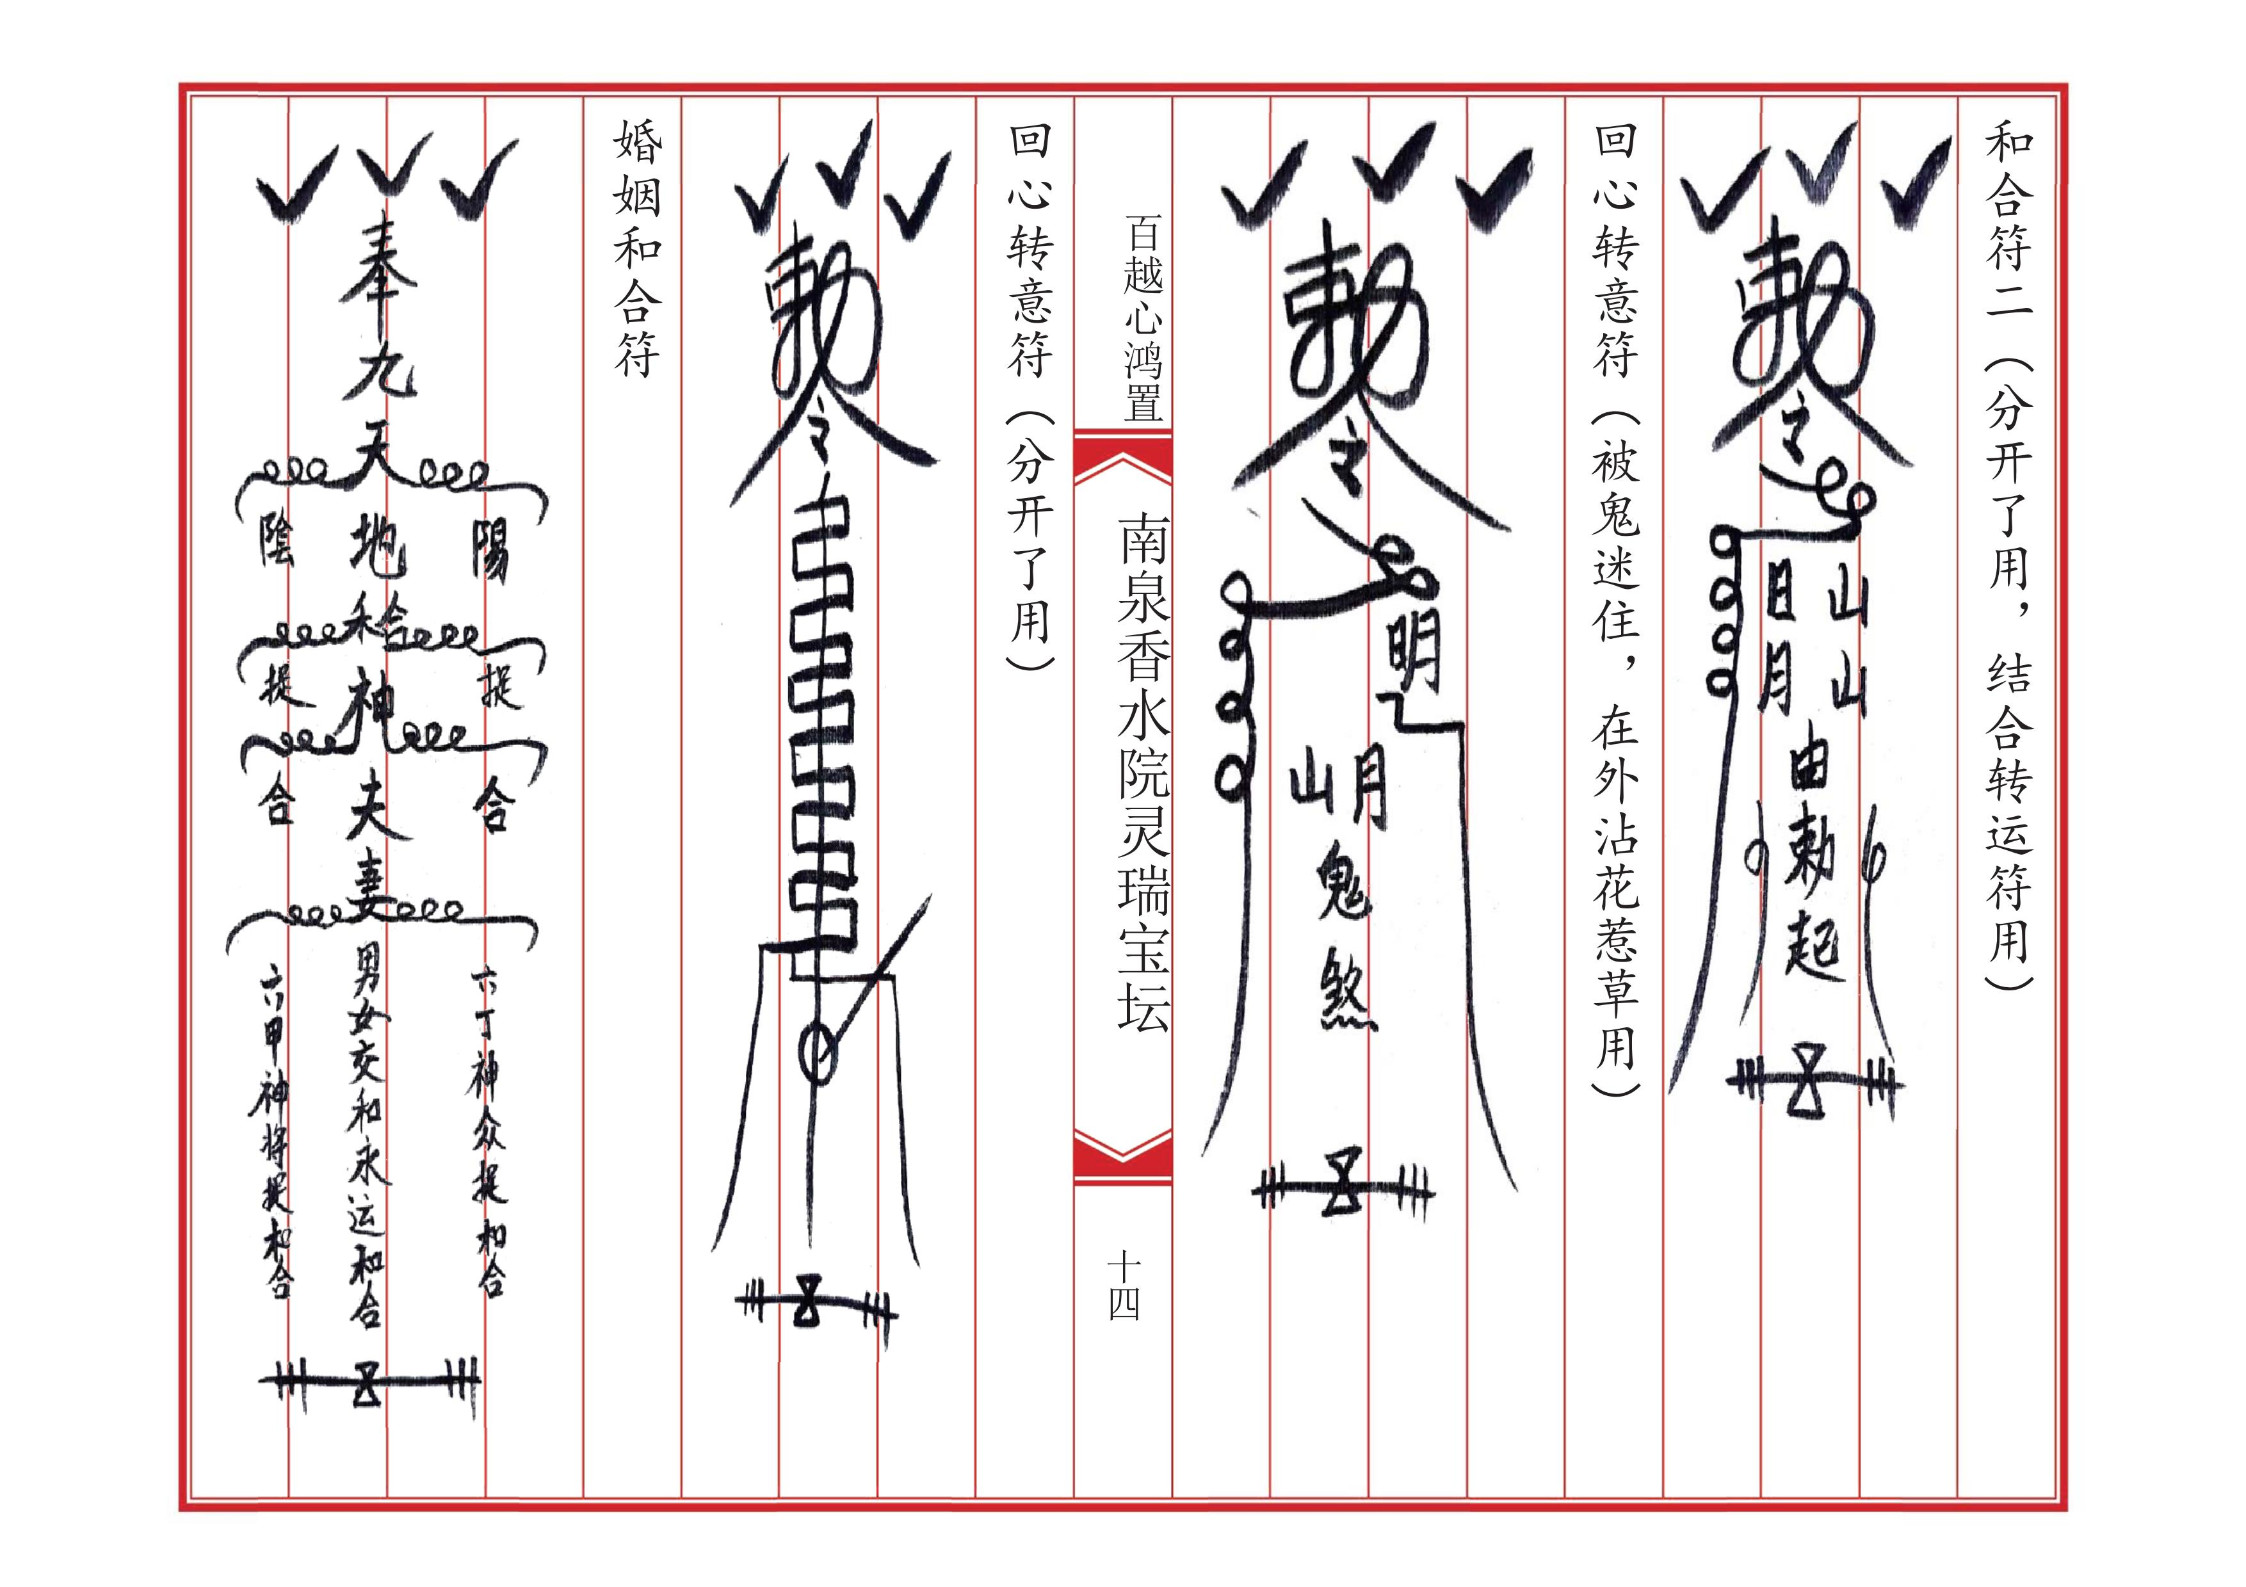 和合符二（分开了用，结合转运符用）
敕令
日月
山山
由敕起
回心转意符（被鬼迷住，在外沾花惹草用）
敕令
明
山月
鬼
煞
百越心鸿置
南泉香水院灵瑞宝坛
十四
回心转意符（分开了用）
敕令
婚姻和合符
奉九天地和合神夫妻男女交和永运和合
陽捉合
六丁神众捉和合
陰捉合
六甲神将捉和合